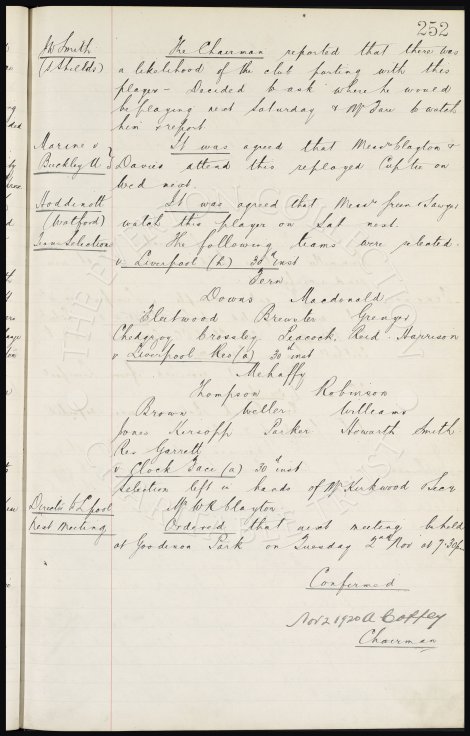 252
J W Smith The Chairman reported that there was
(S Shields) a likelihood of the club parting with this
player - Decided to ask where he would
be playing next Saturday & Mr Fare to watch
him & report
Marine v It was agreed that Messrs Clayton &
Buckley U Davies attend this replayed Cup tie on
Wed next.
Hoddinott It was agreed that Messrs Green & Sawyer
(Watford) watch this player on Sat next.
Team Selection The following teams were selected.
v Liverpool (h) 30th inst
Fern
Downs Macdonald
Fleetwood Brewster Grenyer
Chedgzoy Crossley Peacock Reid Harrison
v Liverpool Res (a) 30th inst
Mehaffy
Thompson Robinson
Brown Weller Williams
Jones Kirsopp Parker Howarth Smith
Res Garrett
v Clock Face (a) 30th inst
Selection left in hands of Mr Kirkwood & Secy
Director to L'pool Mr W R Clayton
Next Meeting Ordered that next meeting be held
at Goodison Park on Tuesday 2nd Nov at 7.30pm
Confirmed
Nov 2 1920 A Coffey
Chairman